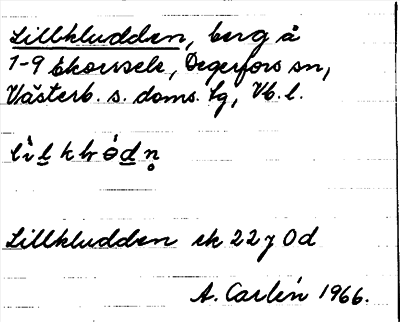 Lillkludden, berg å
1-9 Ekorrsele, Degerfors sn,
Västerb. s. doms. lg, Vb. l.
Lillkludden ek 22 y 0 d
A. Carlén 1966.